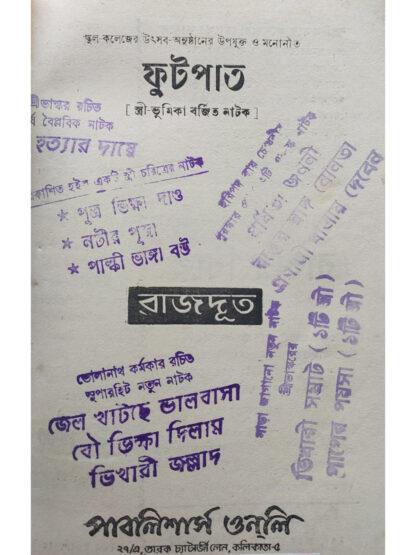 স্কুল-কলেজের উৎসব-অনুষ্ঠানের উপযুক্ত ও মনোনীত
ফুটপাত
[ স্ত্রী-ভূমিকা বর্জিত নাটক ]
শ্রীভাস্কর রচিত
বৈপ্লবিক নাটক
হত্যার দায়ে
প্রকাশিত হইল একটি স্ত্রী চরিত্রের নাটক
★ পুত্র ভিক্ষা দাও
★ নটীর পূজা
★ পাল্কী ভাঙ্গা বউ
রাজদূত
ভোলানাথ কর্মকার রচিত
সুপারহিট নতুন নাটক
জেল খাটছে ভালবাসা
বৌ ভিক্ষা দিলাম
ভিখারী জল্লাদ
সাড়া জাগানো নতুন নাটক
শ্রীভাস্করের
ভিখারী সম্রাট ( ১টি স্ত্রী )
পাপের পয়সা ( ১টি স্ত্রী )
পাবলিশার্স ওন্‌লি
২৭/এ, তারক চ্যাটার্জী লেন, কলিকাতা-৫